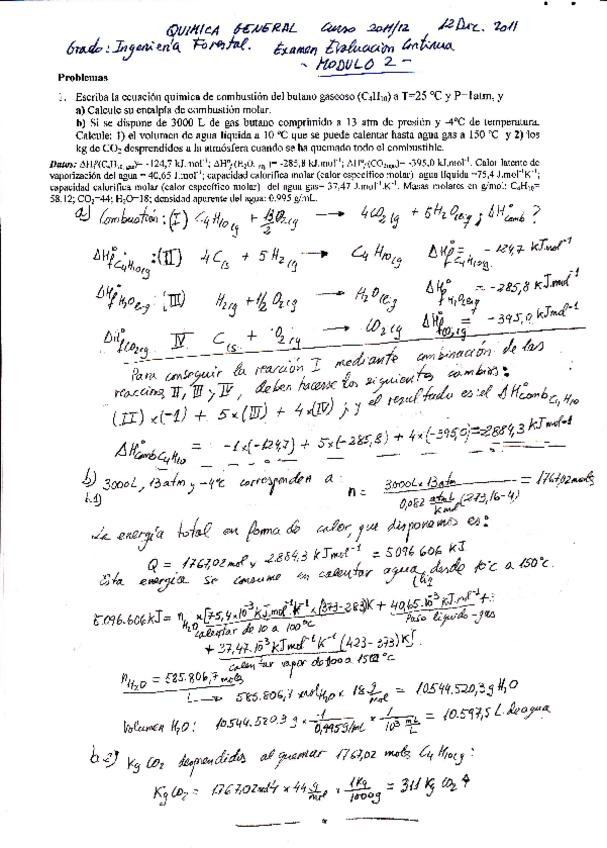 QUIMICA GENERAL Curso 2011/12 12 Dic. 2011
Grado: Ingeniería Forestal. Examen Evaluación Continua
- MODULO 2 -
Problemas
1. Escriba la ecuación química de combustión del butano gaseoso (C4H10) a T=25 ºC y P=1atm, y
a) Calcule su entalpía de combustión molar.
b) Si se dispone de 3000 L de gas butano comprimido a 13 atm de presión y -4ºC de temperatura.
Calcule: 1) el volumen de agua líquida a 10 ºC que se puede calentar hasta agua gas a 150 ºC y 2) los
kg de CO2 desprendidos a la atmósfera cuando se ha quemado todo el combustible.
Datos: ΔHºf(C4H10, gas)= -124,7 kJ. mol-1; ΔHºf(H2O, )= -285,8 kJ.mol-1; ΔHºf(CO2(g))= -395,0 kJ.mol-1. Calor latente de
vaporización del agua = 40,65 J. mol-1; capacidad calorífica molar (calor específico molar) agua líquida =75,4 J.mol-1K-1;
capacidad calorífica molar (calor específico molar) del agua gas= 37,47 J.mol-1.K-1. Masas molares en g/mol: C4H10=
58.12; CO2=44; H2O=18; densidad aparente del agua: 0.995 g/mL.
a) Combustión: (I) C4H10(g) + 13/2 O2(g) → 4CO2(g) + 5H2O(líq) ; ΔHºcomb ?
ΔHºf C4H10(g) : (II) 4C(s) + 5H2(g) → C4H10(g) ΔHºf C4H10(g) = -124,7 kJmol-1
ΔHºf H2O(líq) : (III) H2(g) + 1/2 O2(g) → H2O(líq) ΔHºf H2O(líq) = -285,8 kJmol-1
ΔHºf CO2(g) IV C(s) + O2(g) → CO2(g) ΔHºf CO2(g) = -395,0 kJmol-1
Para conseguir la reacción I mediante combinación de las
reacciones II, III y IV, deben hacerse los siguientes cambios:
(II)x(-1) + 5x(III) + 4x(IV); y el resultado es el ΔHºcomb C4H10
ΔHºcomb C4H10 = -1x(-124,7) + 5x(-285,8) + 4x(-395,0) = -2884,3 kJmol-1
b) 3000L, 13 atm y -4ºC corresponden a: n = 3000L x 13atm / 0,082 atmL/Kmol (273,16-4) = 1767,02 moles
b.1)
La energía total en forma de calor, que disponemos es:
Q = 1767,02 mol x 2884.3 kJ mol-1 = 5096 606 kJ
Esta energía se consume en calentar agua (líq) desde 10ºC a 150ºC.
5.096.606 kJ = nH2O x [75,4.10-3 kJ.mol-1K-1 x (373-283)K + 40,65.10-3 kJ.mol-1 +
calentar de 10 a 100ºC Paso líquido-gas
+ 37,47.10-3 kJ mol-1K-1 (423-373)K]
calentar vapor de 100 a 150ºC
nH2O = 585.806,7 moles
L→ 585.806,7 mol H2O x 18 g/mol = 10.544.520,3 g H2O
Volumen H2O: 10.544.520.3 g x 1/0,995 g/ml x 1/10³ mL/L = 10.597,5 L de agua
b.2) Kg CO2 desprendidos al quemar 1767,02 moles C4H10(g):
Kg CO2 = 1.767,02 x 4 x 44 g/mol x 1Kg/1000g = 311 Kg CO2